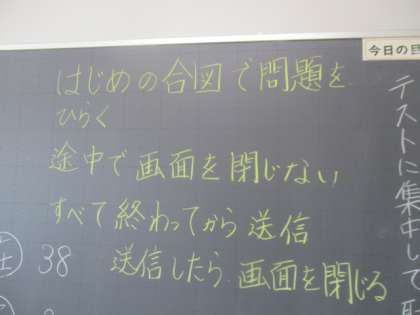 はじめの合図で問題を
ひらく
途中で画面を閉じない
すべて終わってから送信
送信したら画面を閉じる
土 38
今日の目
テストに集中して